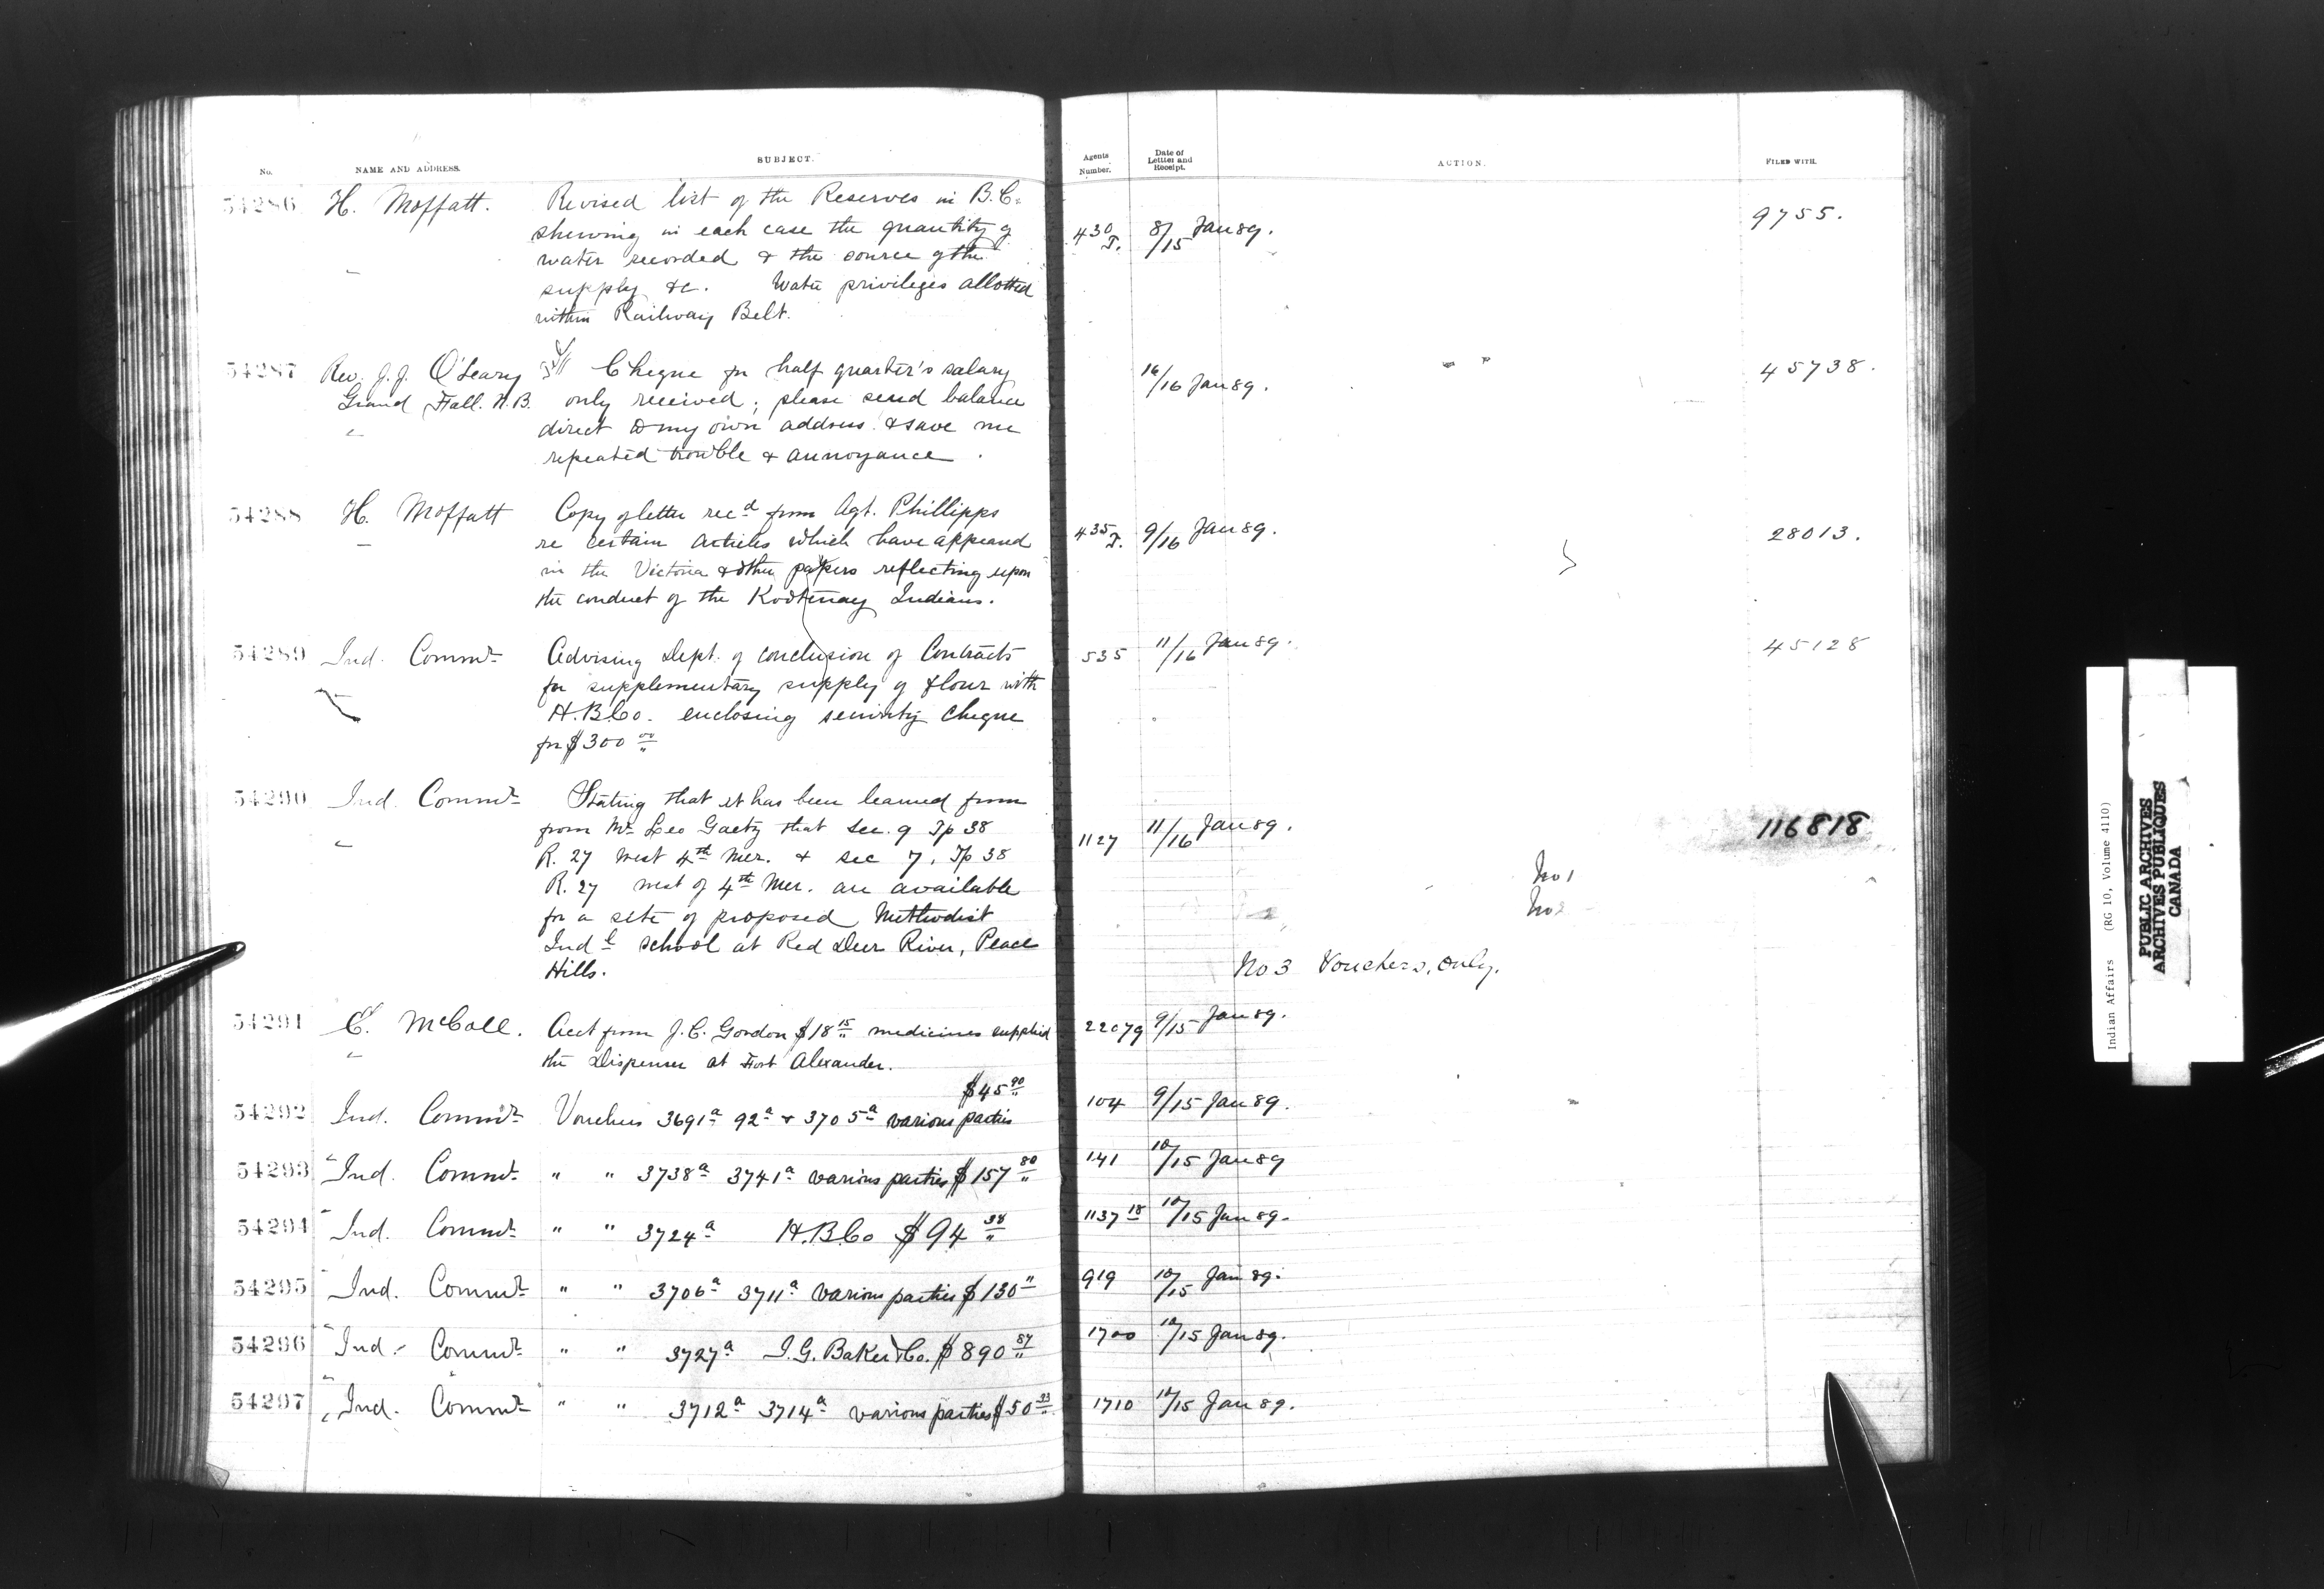 No. NAME AND ADDRESS. SUBJECT. Agents Number. Date of Letter and Receipt. ACTION. FILED WITH.
54286 H. Moffatt. Revised list of the Reserves in B.C. 9755.
shewing in each case the quantity of 430 T. 8/15 Jan 89.
water recorded & the source of the
supply &c. Water privileges allotted
within Railway Belt.
54287 Rev. J. J. O'Leary Cheque for half quarter's salary 16/16 Jan 89. 45738.
Grand Fall. N.B. only received; please send balance
direct to my own address & save me
repeated trouble & annoyance.
54288 H. Moffatt Copy of letter recd from Agt. Phillipps 435 T. 9/16 Jan 89. 28013.
re certain articles which have appeared
in the Victoria & other papers reflecting upon
the conduct of the Kootenay Indians.
54289 Ind. Commr Advising Dept. of conclusion of Contracts 535 11/16 Jan 89. 45128
for supplementary supply of flour with
H.B.Co. enclosing security cheque
for $300 00
54290 Ind. Commr Stating that it has been learned from
from Mr Leo Gaetz that Sec. 9 Tp 38 1127 11/16 Jan 89. 116818
R. 27 West 4th Mer. & sec 7, Tp 38
R. 27 west of 4th Mer. are available No 1
for a site of proposed Methodist No 2
Indl school at Red Deer River, Peace
Hills. No 3 Vouchers, only.
54291 C. McColl. Acct from J. C. Gordon $18 15 medicines supplied 22079 9/15 Jan 89.
the Dispenser at Fort Alexander.
$45 90
54292 Ind. Commr Vouchers 3691a 92a & 3705a various parties 104 9/15 Jan 89.
54293 Ind. Commr " " 3738a 3741a various parties $157 80 141 10/15 Jan 89
54294 Ind. Commr " " 3724a H.B.Co $94 38 1137 18 10/15 Jan 89.
54295 Ind. Commr " " 3706a 3711a various parties $130 " 919 10/15 Jan 89.
54296 Ind. Commr " " 3727a I. G. Baker & Co. $890 87 1700 10/15 Jan 89.
54297 Ind. Commr " " 3712a 3714a various parties $50 33 1710 10/15 Jan 89.
Indian Affairs (RG 10, Volume 4110)
PUBLIC ARCHIVES
ARCHIVES PUBLIQUES
CANADA